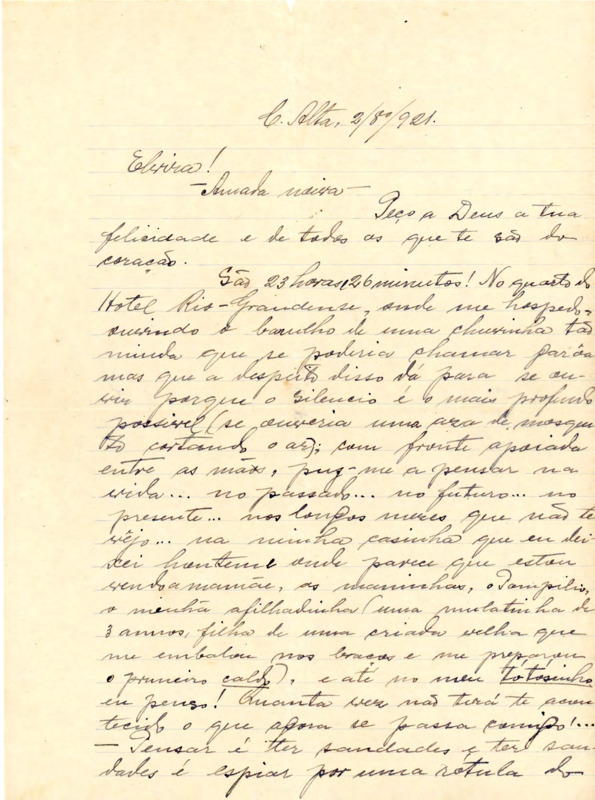 C. Alta, 2/80/921.
Elvira!
— Amada noiva —
Peço a Deus a tua
felicidade e de todos os que te são do
coração.
São 23 horas, 26 minutos! No quarto do
Hotel Rio-Grandense, onde me hospedo,
ouvindo o barulho de uma chuvinha tão
miuda que se poderia chamar garôa
mas que a despeito disso dá para se ou-
vir porque o silencio é o mais profundo
possivel (se ouviria uma aza de mosqui
to cortando o ar); com fronte apoiada
entre as mãos, puz-me a pensar na
vida... no passado... no futuro... no
presente... nos longos mezes que não te
vêjo... na minha casinha que eu dei
xei hontem e onde parece que estou
vendo a mamãe, as maninhas, o Pompilio,
o minha afilhadinha (uma mulatinha de
3 annos, filha de uma criada velha que
me embalou nos braços e me preparou
o primeiro caldo), e até no meu tótósinho
eu penso! Quanta vez não terá te acon
tecido o que agora se passa comigo!...
— Pensar é ter saudades e ter sau-
dades é espiar por uma rótula do